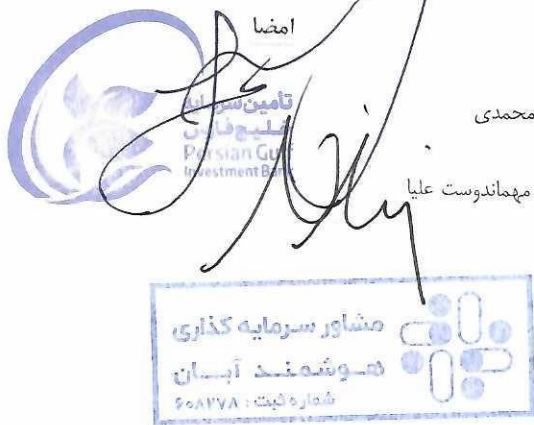 امضا
تأمین سرمایه
خلیج فارس
Persian Gulf
Investment Bank
محمدی
مهماندوست علیا
مشاور سرمایه گذاری
هوشمند آبان
شماره ثبت: ۶۰۸۲۷۸